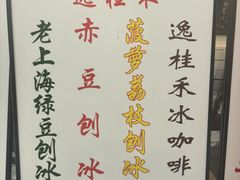 逸桂禾
逸桂禾冰咖啡
菠萝荔枝刨冰
赤豆刨冰
老上海绿豆刨冰